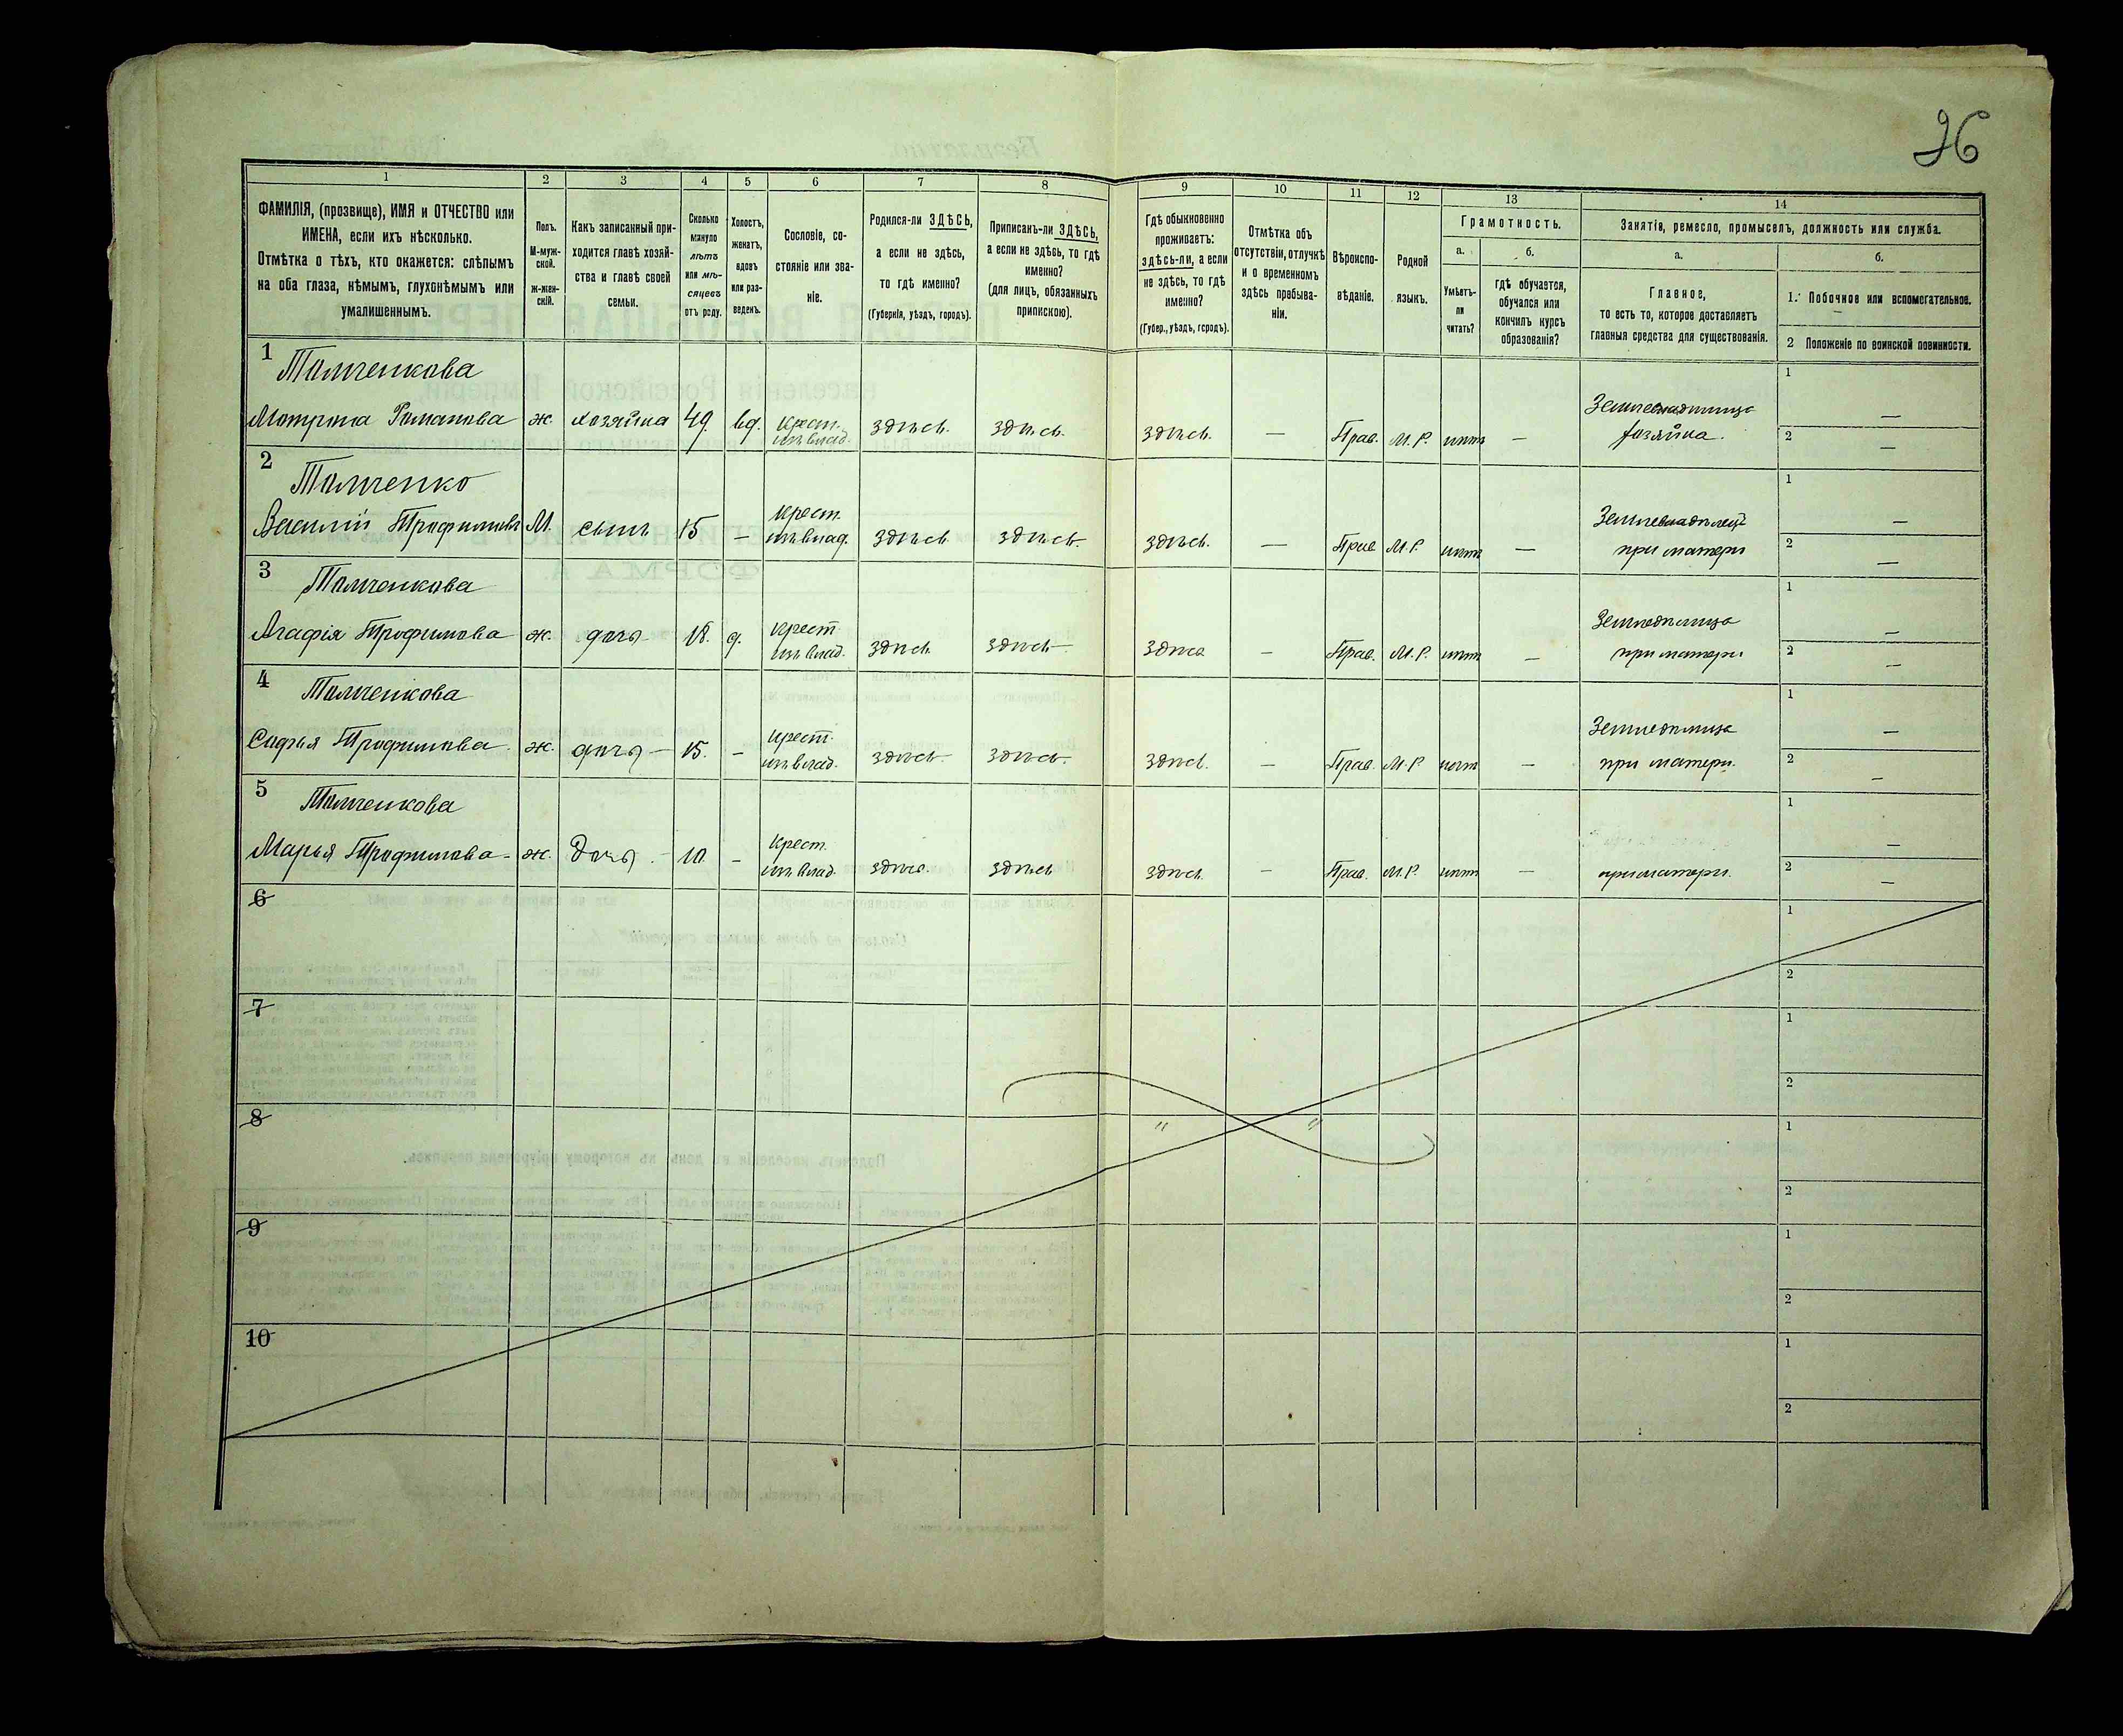 26
1 2 3 4 5 6 7 8 9 10 11 12 13 14
ФАМИЛІЯ, (прозвище), ИМЯ и ОТЧЕСТВО или
ИМЕНА, если ихъ нѣсколько.
Отмѣтка о тѣхъ, кто окажется: слѣпымъ
на оба глаза, нѣмымъ, глухонѣмымъ или
умалишеннымъ.
Полъ.
М-муж-
ской.
ж-жен-
скій.
Какъ записанный при-
ходится главѣ хозяй-
ства и главѣ своей
семьи.
Сколько
минуло
лѣтъ
или мѣ-
сяцевъ
отъ роду.
Холостъ,
женатъ,
вдовъ
или раз-
веденъ.
Сословіе, со-
стояніе или зва-
ніе.
Родился-ли ЗДѢСЬ,
а если не здѣсь,
то гдѣ именно?
(Губернія, уѣздъ, городъ).
Приписанъ-ли ЗДѢСЬ,
а если не здѣсь, то гдѣ
именно?
(для лицъ, обязанныхъ
припискою).
Гдѣ обыкновенно
проживаетъ:
здѣсь-ли, а если
не здѣсь, то гдѣ
именно?
(Губер., уѣздъ, городъ).
Отмѣтка объ
отсутствіи, отлучкѣ
и о временномъ
здѣсь пребыва-
ніи.
Вѣроиспо-
вѣданіе.
Родной
языкъ.
Грамотность.
а. б.
Умѣетъ-
ли
читать?
гдѣ обучается,
обучался или
кончилъ курсъ
образованія?
Занятія, ремесло, промыселъ, должность или служба.
а. б.
Главное,
то есть то, которое доставляетъ
главныя средства для существованія.
1. Побочное или вспомогательное.
2 Положеніе по воинской повинности.
1 Толченкова 1
Мотрона Романова ж. хозяйка 49. вд. Крест. изъ влад. здѣсь. здѣсь. здѣсь. — Прав. М.Р. нѣтъ — хозяйка. — 2 —
2 Толченко 1
Василій Трофимовъ М. сынъ 15 — Крест. изъ влад. здѣсь здѣсь. здѣсь. — Прав М.Р. нѣтъ — при матери — 2 —
3 Толченкова 1
Агафія Трофимова ж. дочь 18. д. Крест изъ влад. здѣсь здѣсь здѣсь — Прав. М.Р. нѣтъ — Земледѣлица при матери — 2 —
4 Толченкова 1
Софья Трофимова. ж. дочь — 15. — Крест. изъ влад. здѣсь здѣсь. здѣсь. — Прав. М.Р. нѣтъ — Земледѣлица при матери. — 2 —
5 Толченкова 1
Марья Трофимова - ж. Дочь. — 10. — Крест. изъ влад. здѣсь. здѣсь здѣсь. — Прав. М.Р. нѣтъ — при матери. — 2 —
6 1
2
7 1
2
8 " " 1
2
9 1
2
10 1
2